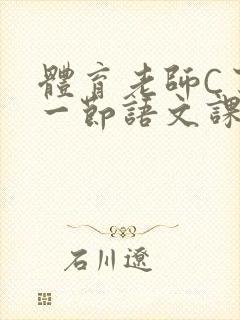 體育老師C
一節語文課
石川遼